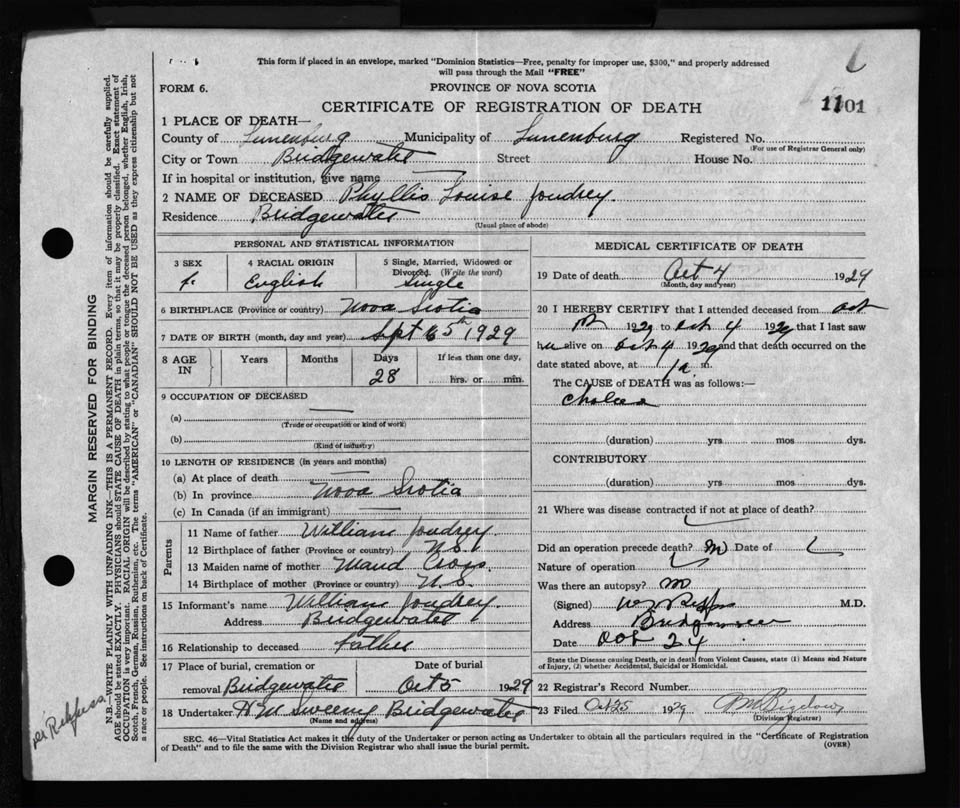 This form if placed in an envelope, marked "Dominion Statistics—Free, penalty for improper use, $300," and properly addressed
will pass through the Mail "FREE"
FORM 6.
PROVINCE OF NOVA SCOTIA
CERTIFICATE OF REGISTRATION OF DEATH
1101
1 PLACE OF DEATH—
County of Lunenburg Municipality of Lunenburg Registered No.
(For use of Registrar General only)
City or Town Bridgewater Street House No.
If in hospital or institution, give name
2 NAME OF DECEASED Phyllis Louise Joudrey.
Residence Bridgewater
(Usual place of abode)
PERSONAL AND STATISTICAL INFORMATION
3 SEX
f.
4 RACIAL ORIGIN
English
5 Single, Married, Widowed or
Divorced. (Write the word)
Single
6 BIRTHPLACE (Province or country) Nova Scotia
7 DATE OF BIRTH (month, day and year) Sept 5th 1929
8 AGE IN
Years
Months
Days
28
If less than one day,
hrs. or min.
9 OCCUPATION OF DECEASED
(a)
(Trade or occupation or kind of work)
(b)
(Kind of industry)
10 LENGTH OF RESIDENCE (in years and months)
(a) At place of death
(b) In province Nova Scotia
(c) In Canada (if an immigrant)
Parents
11 Name of father William Joudrey
12 Birthplace of father (Province or country) N.S.
13 Maiden name of mother Maud Cross
14 Birthplace of mother (Province or country) N.S.
15 Informant's name William Joudrey.
Address Bridgewater
16 Relationship to deceased Father
17 Place of burial, cremation or Date of burial
removal Bridgewater Oct 5 1929
18 Undertaker H M Sweeny Bridgewater
(Name and address)
MEDICAL CERTIFICATE OF DEATH
19 Date of death Oct 4 1929
(Month, day and year)
20 I HEREBY CERTIFY that I attended deceased from Oct
1929 to Oct 4 1929 that I last saw
alive on Oct 4 1929 and that death occurred on the
date stated above, at m.
The CAUSE of DEATH was as follows:—
(duration) yrs. mos dys.
CONTRIBUTORY
(duration) yrs. mos dys.
21 Where was disease contracted if not at place of death?
Did an operation precede death? Date of
Nature of operation
Was there an autopsy?
(Signed) M.D.
Address Bridgewater
Date Oct 24
State the Disease causing Death, or in death from Violent Causes, state (1) Means and Nature
of Injury, (2) whether Accidental, Suicidal or Homicidal.
22 Registrar's Record Number
23 Filed Oct 25 1929
(Division Registrar)
SEC. 46—Vital Statistics Act makes it the duty of the Undertaker or person acting as Undertaker to obtain all the particulars required in the "Certificate of Registration
of Death" and to file the same with the Division Registrar who shall issue the burial permit.
(OVER)
MARGIN RESERVED FOR BINDING
N.B.—WRITE PLAINLY WITH UNFADING INK—THIS IS A PERMANENT RECORD. Every item of information should be carefully supplied.
AGE should be stated EXACTLY. PHYSICIANS should STATE CAUSE OF DEATH in plain terms, so that it may be properly classified. Exact statement of
OCCUPATION is very important. RACIAL ORIGIN will be described by stating to what people or tongue the deceased person belonged, whether English, Irish,
Scotch, French, German, Russian, Ruthenian, etc. The terms "AMERICAN" or "CANADIAN" SHOULD NOT BE USED as they express citizenship but not
a race or people. See instructions on back of Certificate.